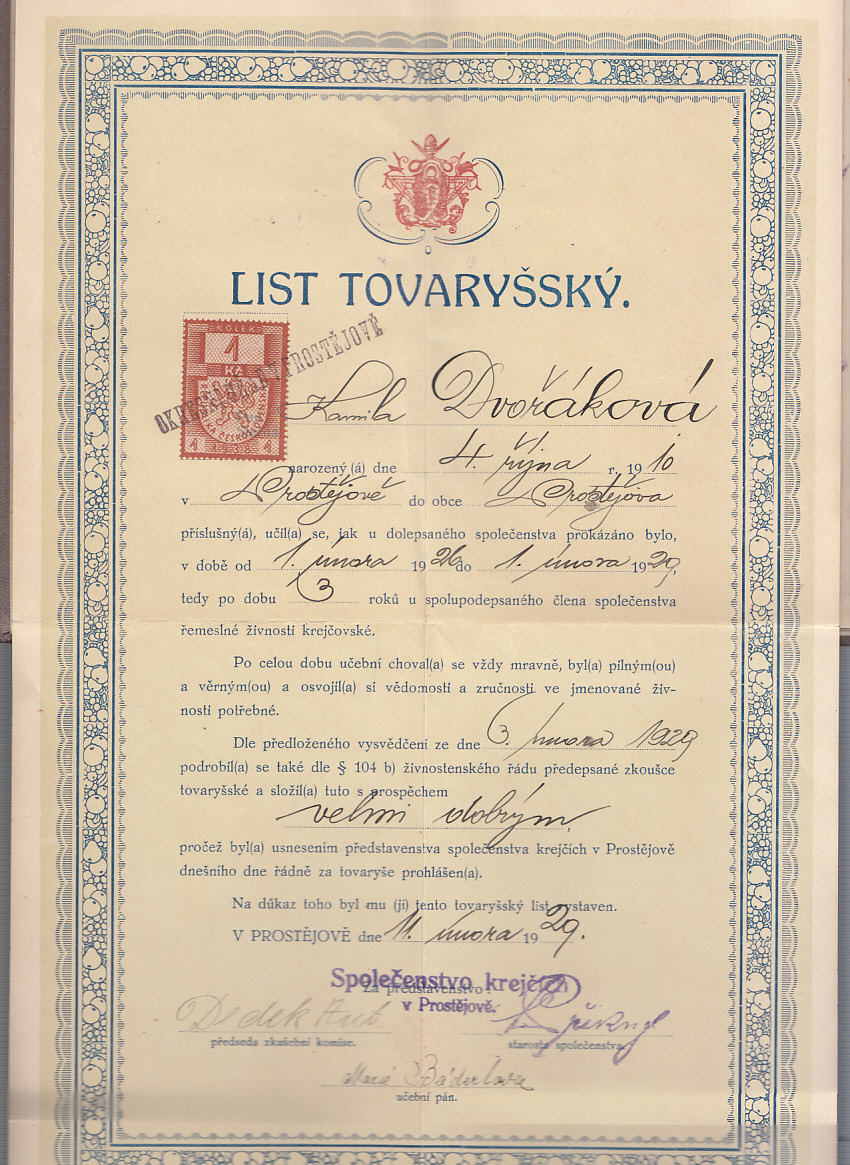 LIST TOVARYŠSKÝ.
KOLEK
1
Kč
1 1
V PROSTĚJOVĚ
Kamila Dvořáková
narozený (á) dne 4. října r. 1910
v Prostějově do obce Prostějova
příslušný(á), učil(a) se, jak u dolepsaného společenstva prokázáno bylo,
v době od 1. února 1926 do 1. února 1929,
tedy po dobu 3 roků u spolupodepsaného člena společenstva
řemeslné živnosti krejčovské.
Po celou dobu učební choval(a) se vždy mravně, byl(a) pilným(ou)
a věrným(ou) a osvojil(a) si vědomosti a zručnosti ve jmenované živ-
nosti potřebné.
Dle předloženého vysvědčení ze dne 3. února 1929
podrobil(a) se také dle § 104 b) živnostenského řádu předepsané zkoušce
tovaryšské a složil(a) tuto s prospěchem
velmi dobrým,
pročež byl(a) usnesením představenstva společenstva krejčích v Prostějově
dnešního dne řádně za tovaryše prohlášen(a).
Na důkaz toho byl mu (jí) tento tovaryšský list vystaven.
V PROSTĚJOVĚ dne 11. února 1929.
Společenstvo krejčích
Za představenstvo
v Prostějově.
Dedek Ant.
předseda zkušební komise. starosta společenstva
učební pán.